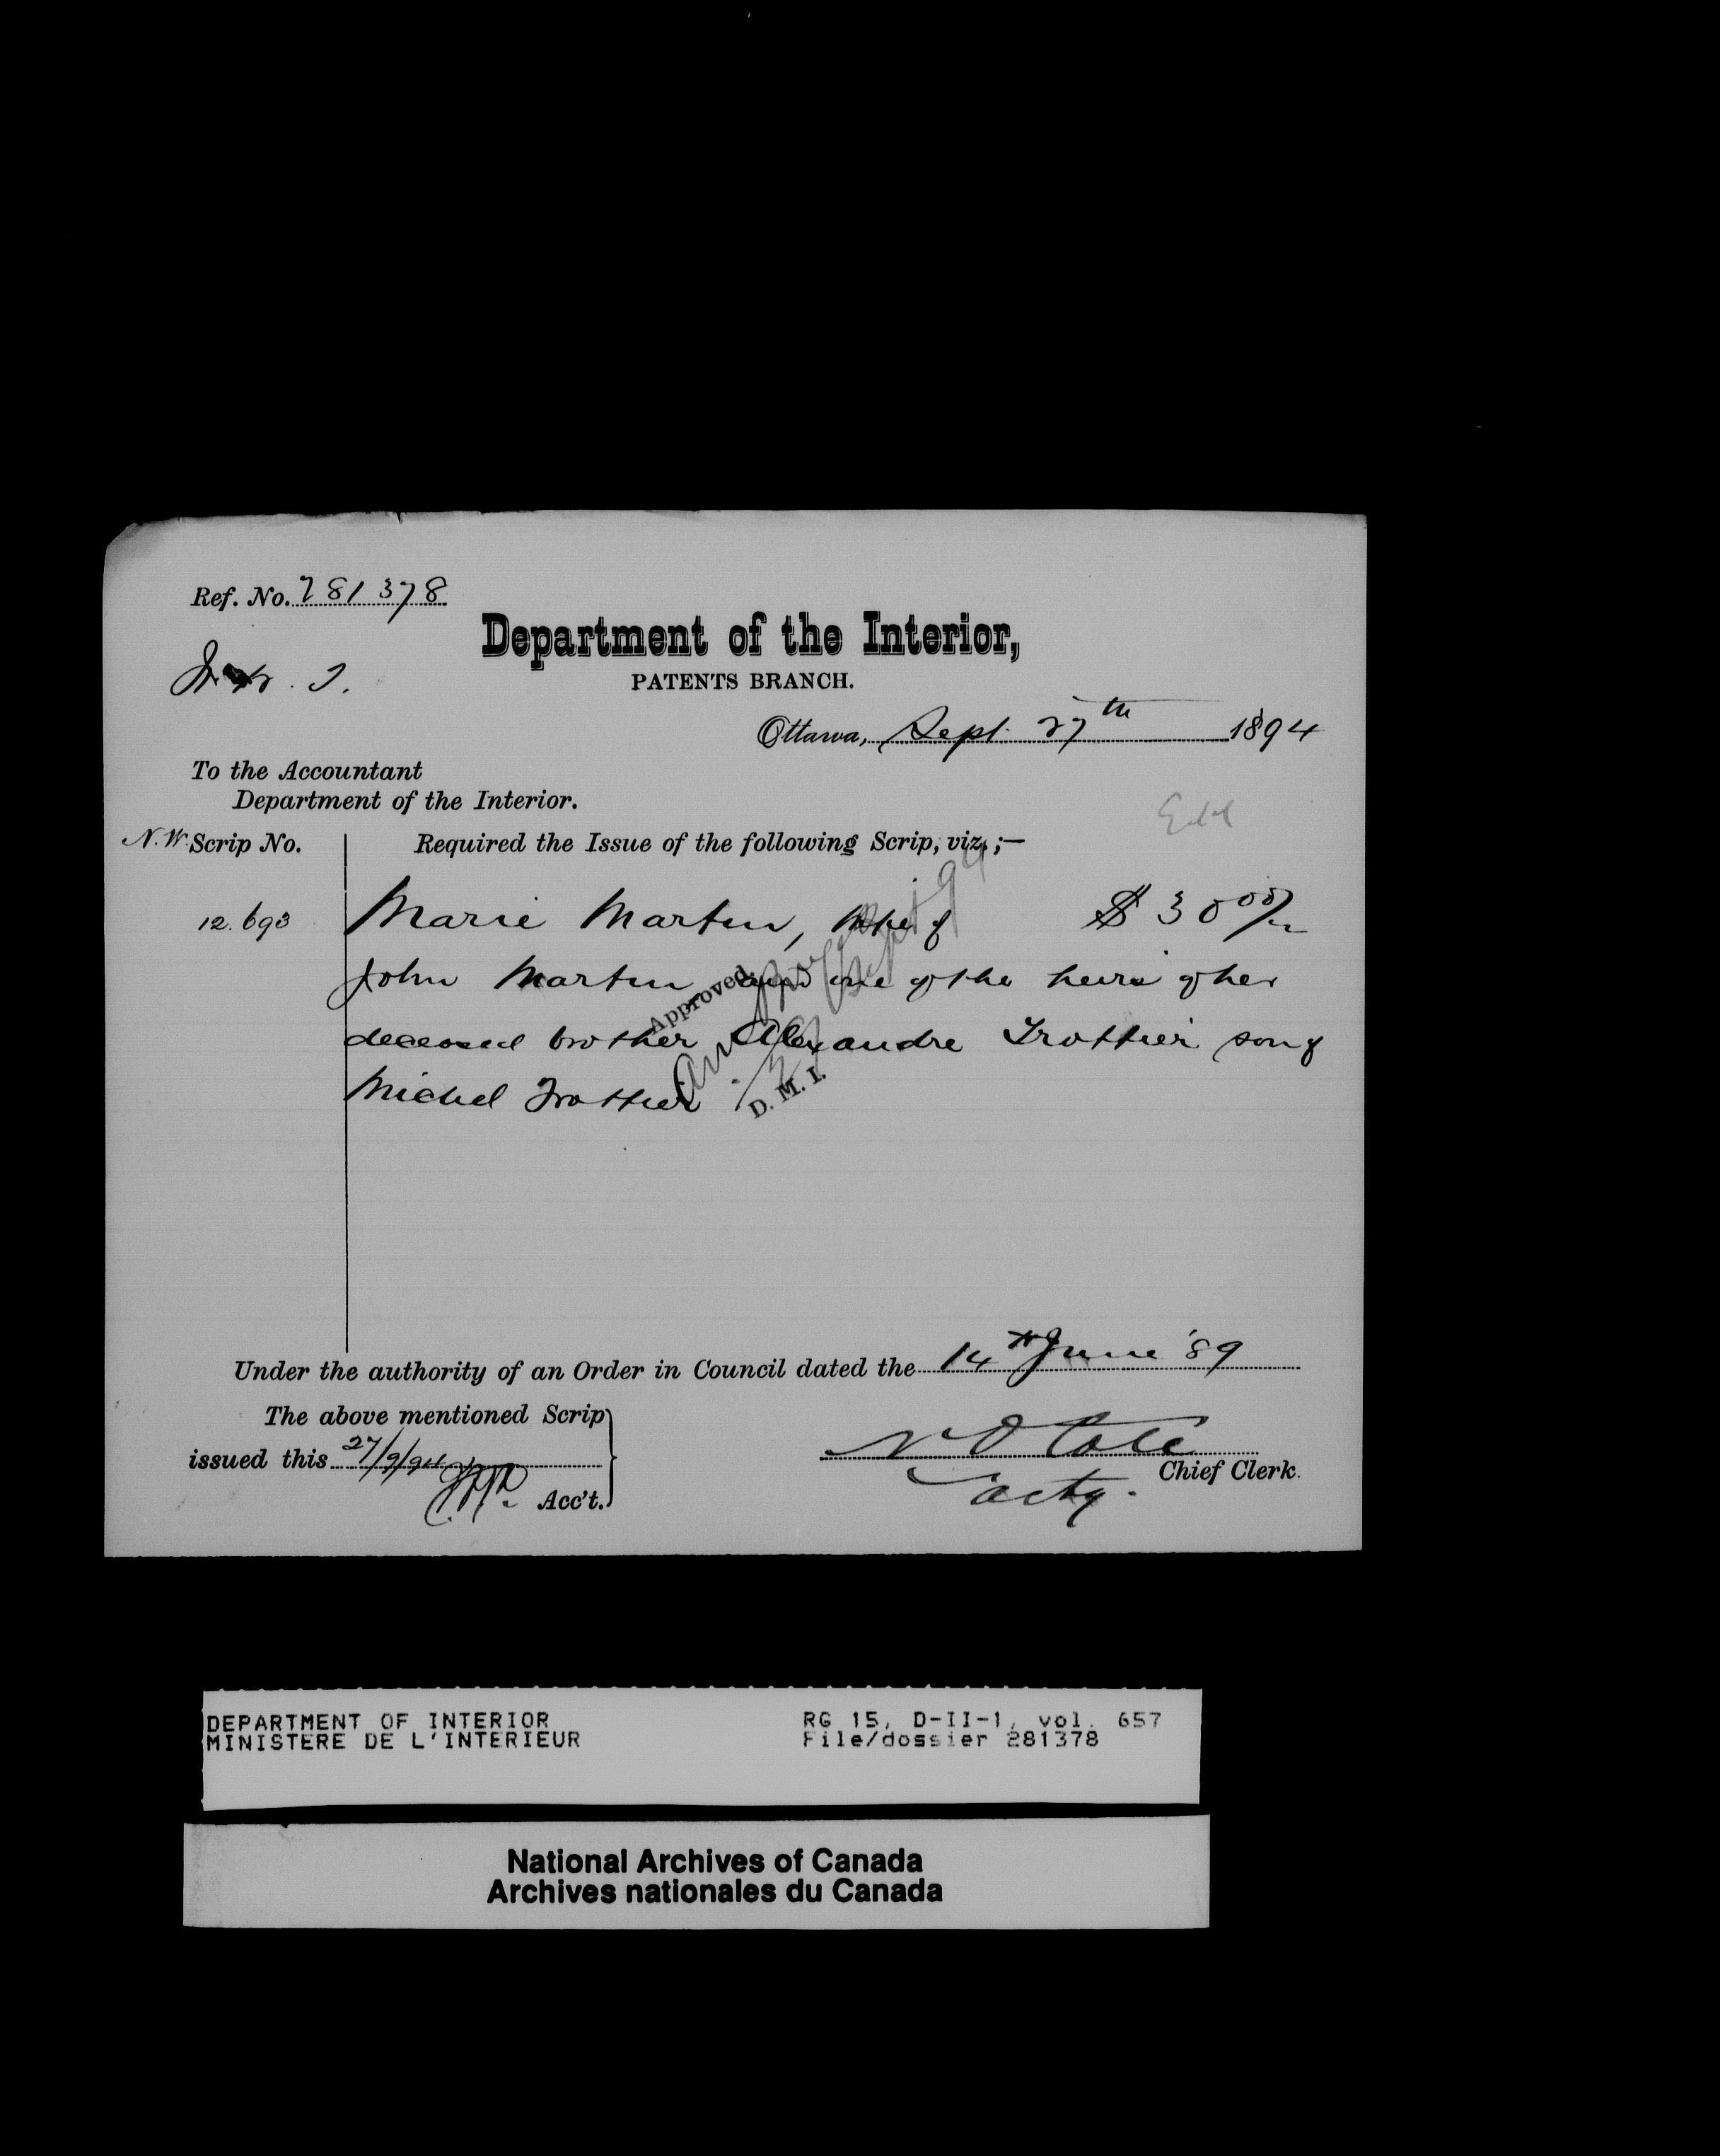 Ref. No. 281378
Department of the Interior,
PATENTS BRANCH.
Ottawa, Sept. 27th 1894
To the Accountant
Department of the Interior.
N.W. Scrip No. Required the Issue of the following Scrip, viz, ;—
12.693 Marie Martin, wife of $ 30 00/
John Martin and one of the heirs of her
deceased brother Alexandre Trottier son of
Michel Trottier
Approved,
27 Sept 94
D. M. I.
Under the authority of an Order in Council dated the 14th June '89
The above mentioned Scrip
issued this 27/9/94
Acc't.
N O Cote
Chief Clerk.
actg.
DEPARTMENT OF INTERIOR RG 15, D-II-1, vol. 657
MINISTERE DE L'INTERIEUR File/dossier 281378
National Archives of Canada
Archives nationales du Canada